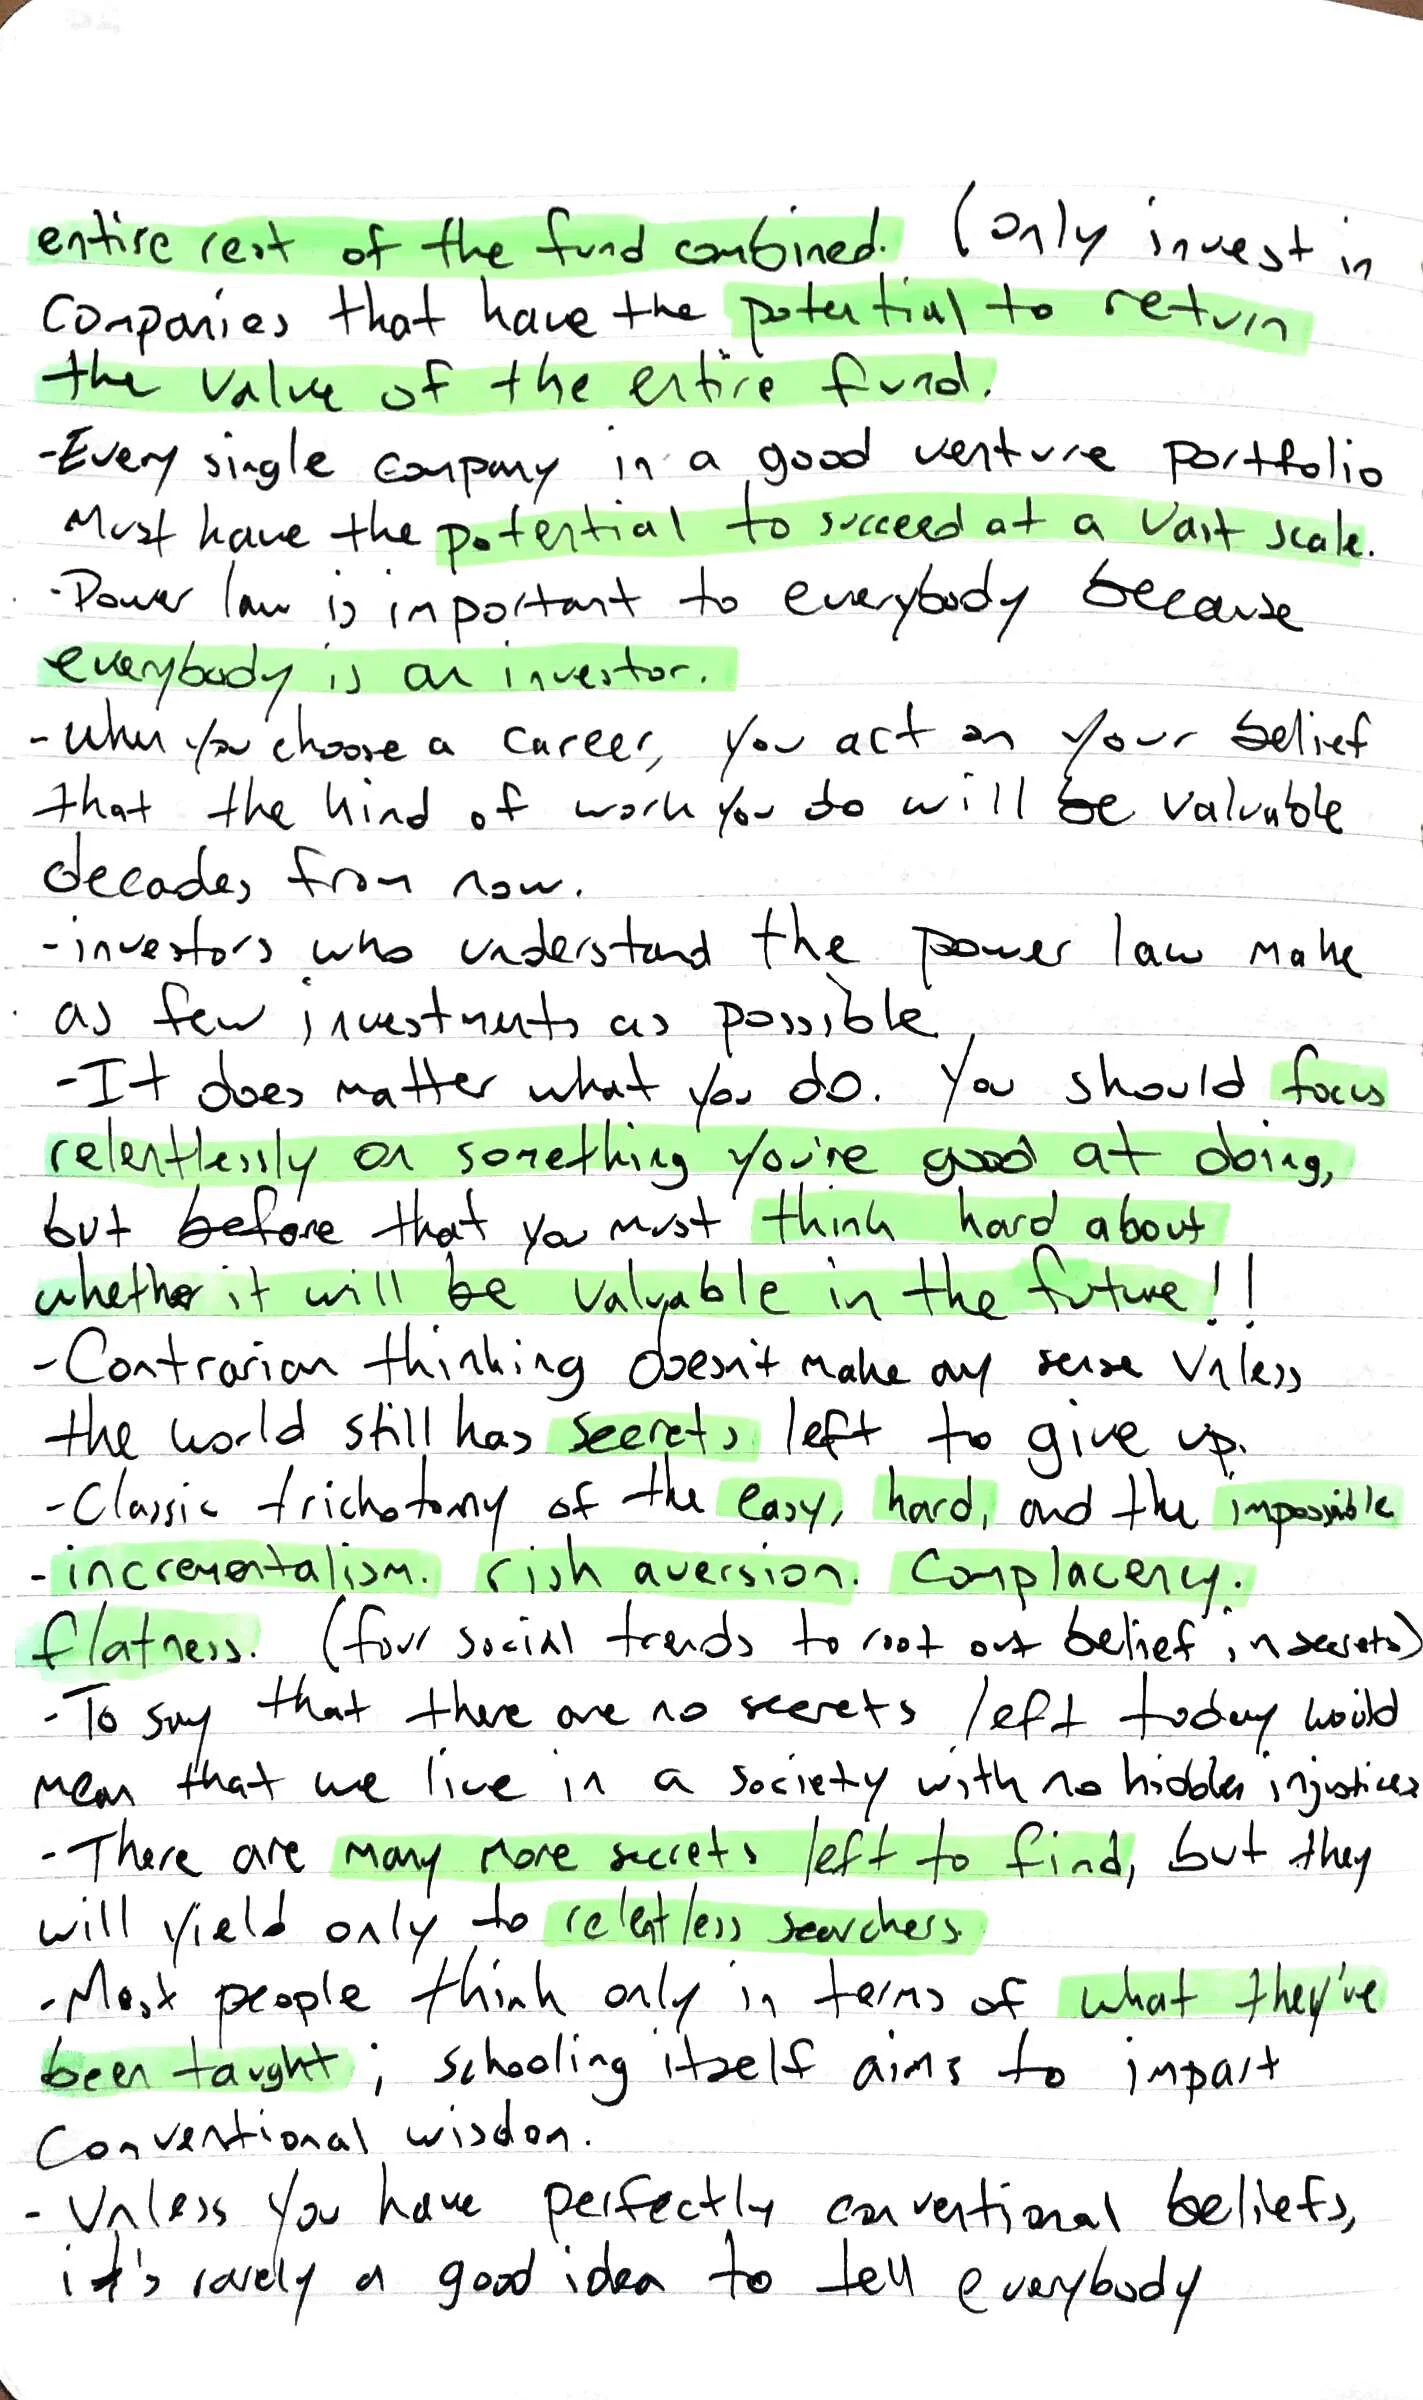 entire rest of the fund combined. (only invest in
Companies that have the potential to return
the value of the entire fund.
-Every single company in a good venture portfolio
Must have the potential to succeed at a vast scale.
-Power law is important to everybody because
everybody is an investor.
-When you choose a career, you act on your belief
that the kind of work you do will be valuable
decades from now.
-investors who understand the power law make
as few investments as possible
-It does matter what you do. You should focus
relentlessly on something you're good at doing,
but before that you must think hard about
whether it will be valuable in the future!!
-Contrarian thinking doesn't make any sense Unless
the world still has secrets left to give up.
-Classic trichotomy of the easy, hard, and the impossible
-incrementalism. risk aversion. Complacency.
flatness. (four social trends to root out belief in secrets)
-To say that there are no secrets left today would
mean that we live in a society with no hidden injustices
-There are many more secrets left to find, but they
will yield only to relentless searchers.
-Most people think only in terms of what they've
been taught; schooling itself aims to impart
Conventional wisdom.
-Unless you have perfectly conventional beliefs,
it's rarely a good idea to tell everybody